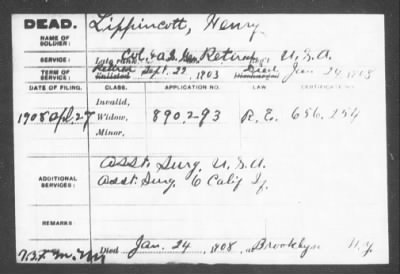 DEAD. Lippincott, Henry
NAME OF SOLDIER:
SERVICE: Late rank Col. & A.S. Gen. Retired U.S.A.
TERM OF SERVICE: Retired Enlisted Sept. 22, 1903 Died Discharged Jan. 24, 1908
DATE OF FILING. CLASS. APPLICATION NO. LAW. CERTIFICATE NO.
Invalid,
1908 Apl. 27 Widow, 890,293 R.E. 656,254
Minor,
ADDITIONAL SERVICES: Asst. Surg. U.S.A.
Asst. Surg. 6 Calif If.
REMARKS:
Died Jan. 24, 1908, at Brooklyn N.Y.